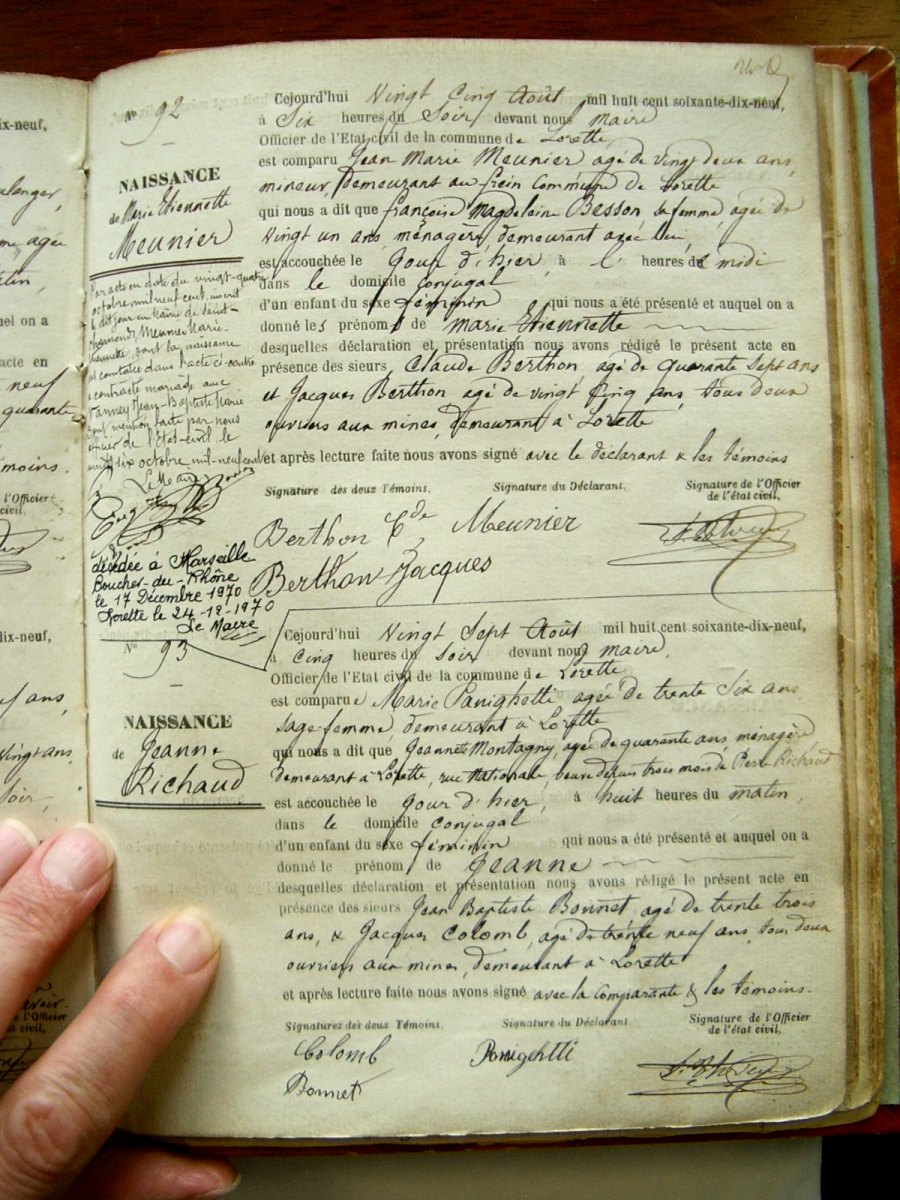 ix-neuf,
ulanger,
me, agée
atin,
uel on a
acte en
neuf
quarante
moins.
l'Officier
civil.
dix-neuf,
uf ans,
Vingt ans,
Soir,
l'Officier
at civil,
Nº 92
NAISSANCE
de Marie Etiennette
Meunier
Par acte en date du vingt-quatre
octobre mil neuf cent, inscrit
le dit jour en Mairie de Saint-
Chamond, Meunier Marie-
Etiennette, dont la naissance
est constatée dans l'acte ci-contre
a contracté mariage avec
Jean-Baptiste Marie
dont mention faite par nous
officier de l'Etat-civil le
vingt six octobre mil-neuf cent
Le Maire
décédée à Marseille
Boucher-du-Rhône
le 17 Décembre 1970
Lorette le 24-12-1970
Le Maire
Cejourd'hui Vingt Cinq Août mil huit cent soixante-dix-neuf,
à Six heures du Soir devant nous maire
Officier de l'Etat civil de la commune de Lorette
est comparu Jean Marie Meunier agé de vingt deux ans,
mineur, demeurant au frein Commune de Lorette
qui nous a dit que françoise Magdeleine Besson sa femme, agée de
Vingt un ans, ménagère, demeurant avec lui,
est accouchée le jour d'hier, à l' heures de midi
dans le domicile conjugal
d'un enfant du sexe féminin qui nous a été présenté et auquel on a
donné les prénoms de marie Etiennette
desquelles déclaration et présentation nous avons rédigé le présent acte en
présence des sieurs Claude Berthon agé de quarante Sept ans
et Jacques Berthon, agé de vingt Cinq ans, tous deux
ouvriers aux mines, demeurant à Lorette
et après lecture faite nous avons signé avec le déclarant & les témoins
Signature des deux Témoins. Signature du Déclarant. Signature de l'Officier
de l'état civil,
Berthon Cde Meunier
Berthon Jacques
Nº 93
NAISSANCE
de Jeanne
Richaud
Cejourd'hui Vingt Sept Août mil huit cent soixante-dix-neuf,
à Cinq heures du Soir devant nous maire
Officier de l'Etat civil de la commune de Lorette
est comparue Marie Panighetti agée de trente Six ans
Sage-femme, demeurant à Lorette
qui nous a dit que Jeannette Montagny, agée de quarante ans, ménagère
demeurant à Lorette, rue Nationale, veuve depuis trois mois de Pierre Richaud
est accouchée le jour d'hier, à huit heures du matin,
dans le domicile conjugal
d'un enfant du sexe féminin qui nous a été présenté et auquel on a
donné le prénom de Jeanne
desquelles déclaration et présentation nous avons rédigé le présent acte en
présence des sieurs Jean Baptiste Bonnet, agé de trente trois
ans, & Jacques Colomb, agé de trente neuf ans, tous deux
ouvriers aux mines, demeurant à Lorette
et après lecture faite nous avons signé avec la Comparante & les témoins.
Signatures des deux Témoins. Signature du Déclarant. Signature de l'Officier
de l'état civil,
Colomb Panighetti
Bonnet